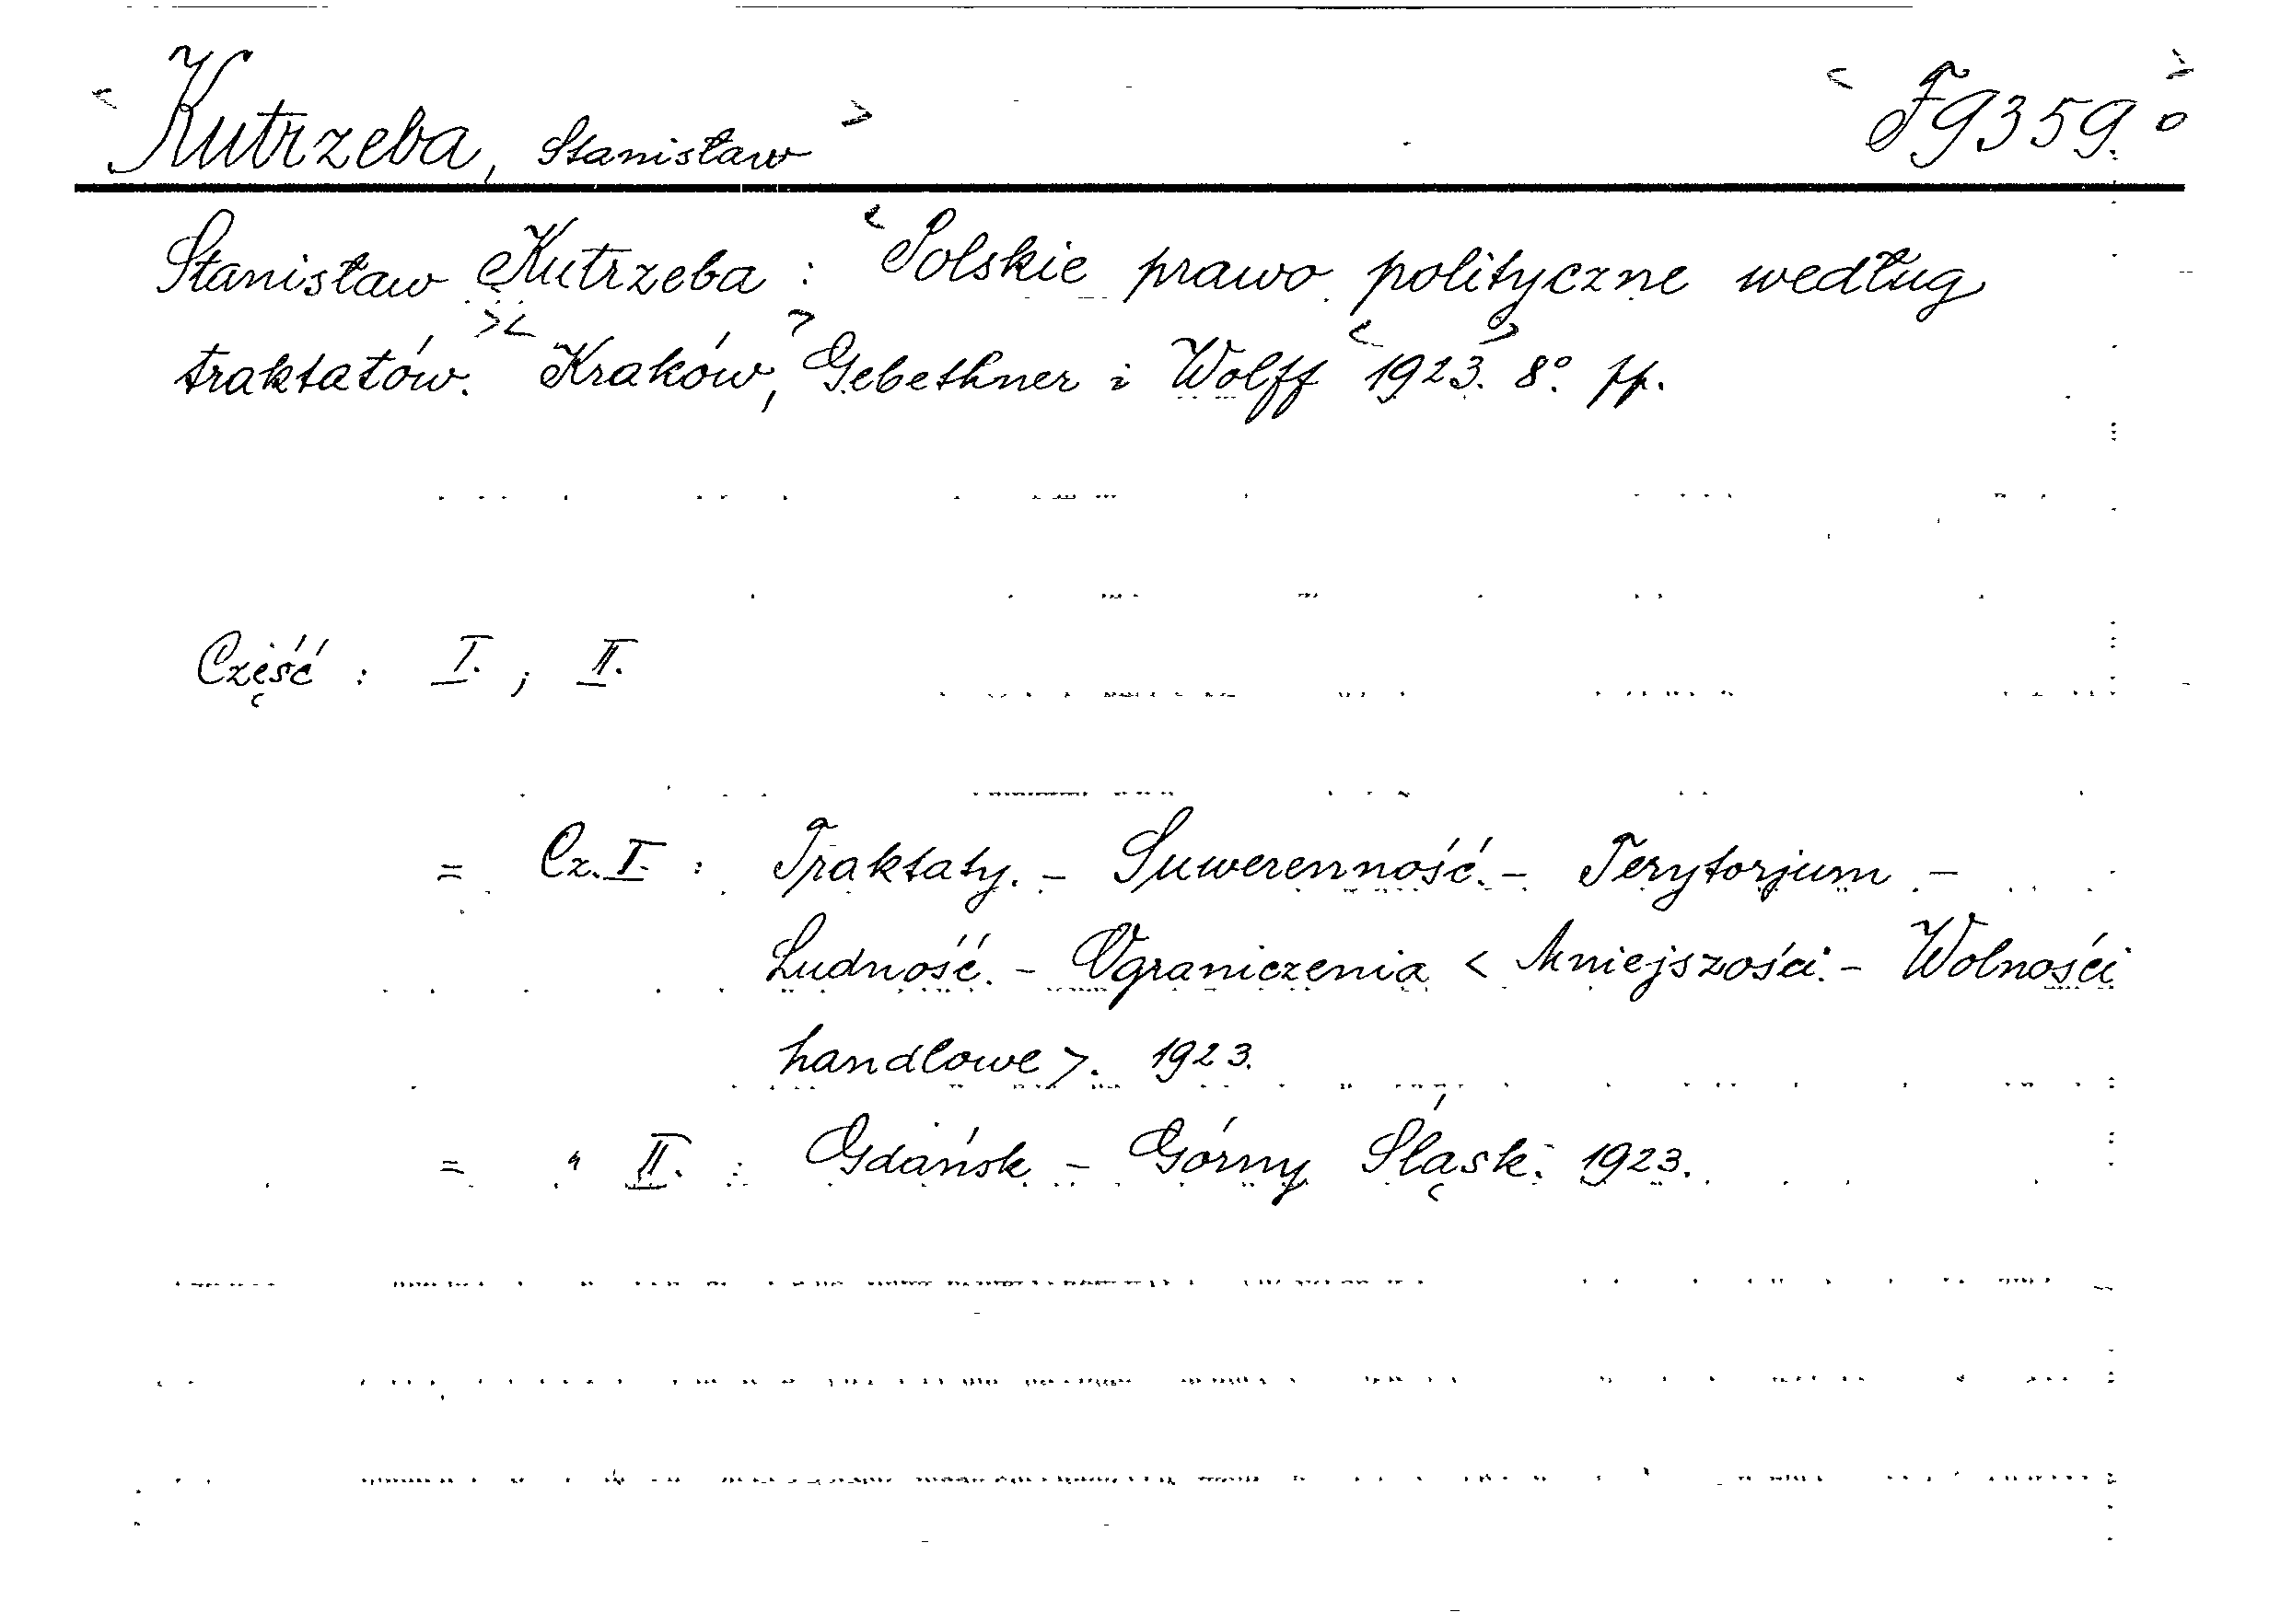 < Kutrzeba, Stanisław > < F9359. >o
Stanisław Kutrzeba : < Polskie prawo polityczne według
traktatów. >< Kraków, > Gebethner i Wolff < 1923. > 8°. pp.
Część : I. ; II.
= Cz. I. : Traktaty. - Suwerenność. - Terytorjum -
Ludność. - Ograniczenia < Mniejszości. - Wolności
handlowe >. 1923.
= " II. : Gdańsk - Górny Śląsk. 1923.